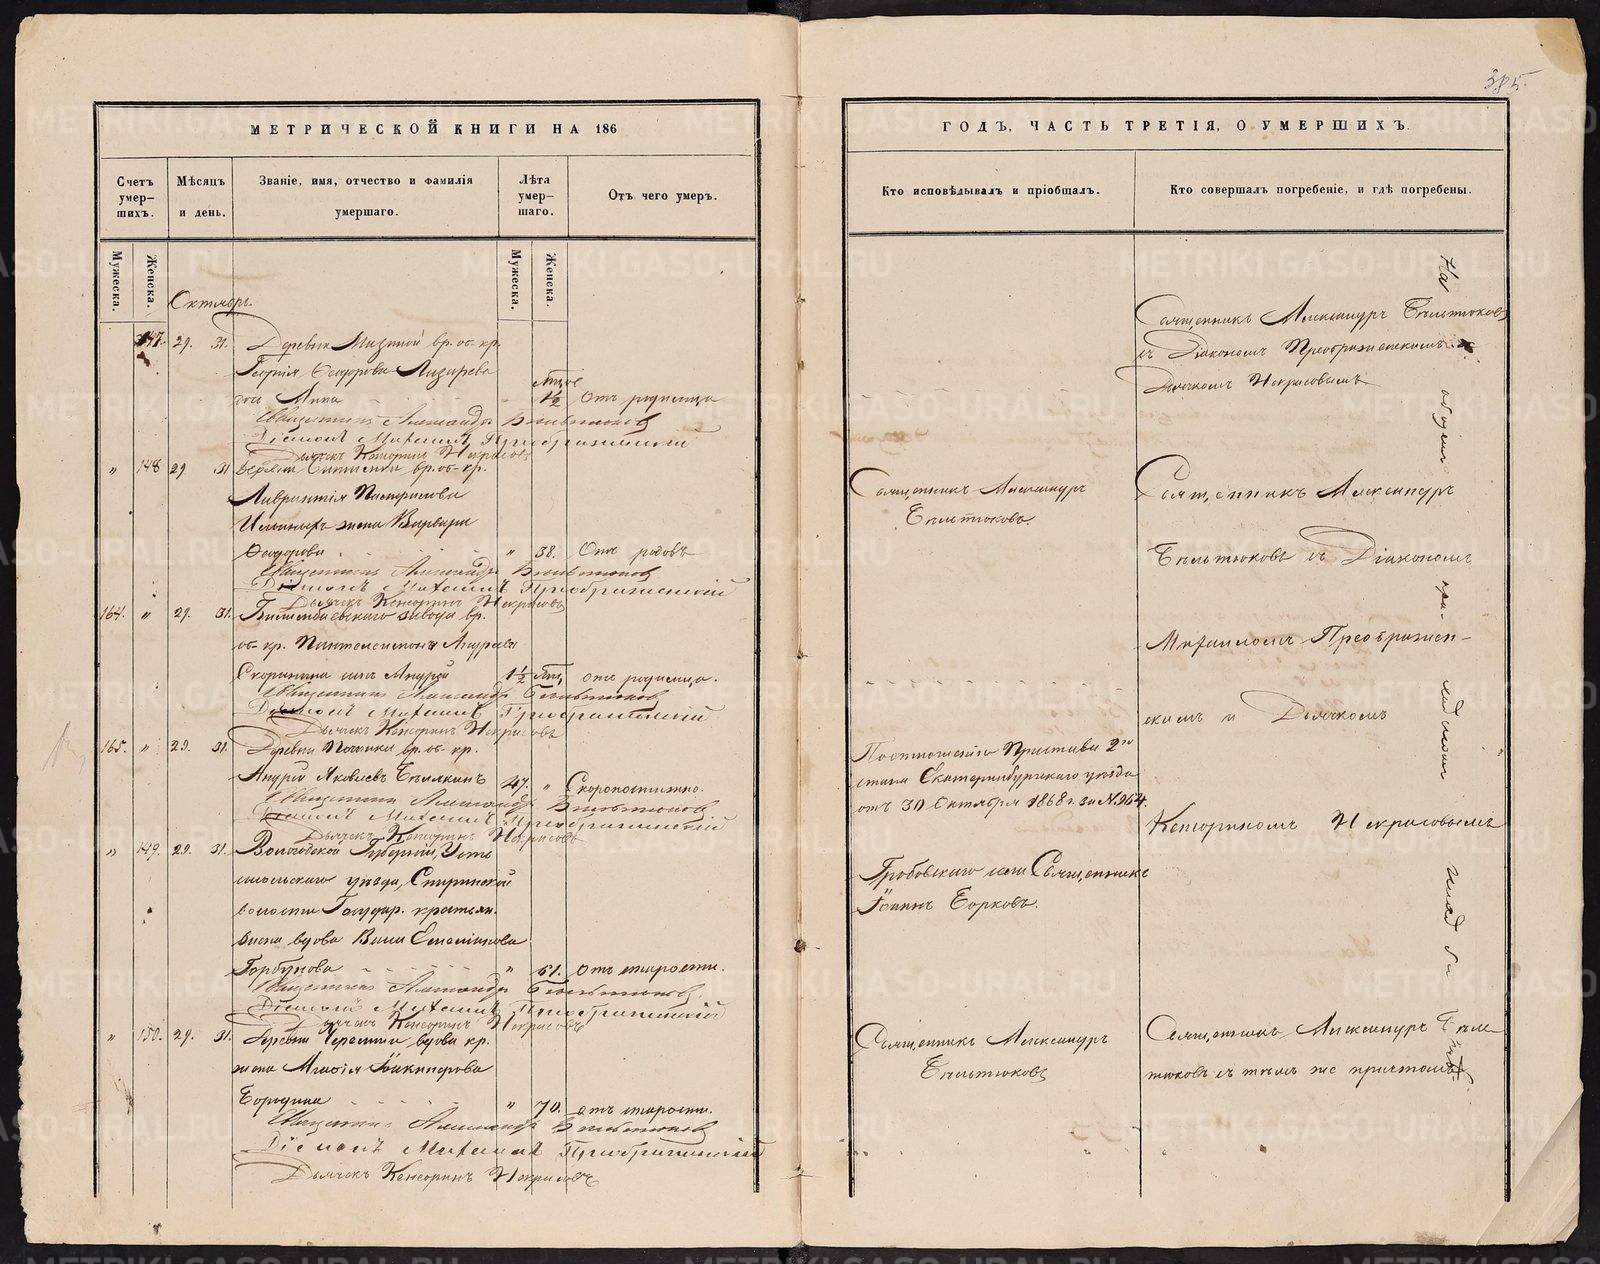 385.
МЕТРИЧЕСКОЙ КНИГИ НА 186
Счетъ умер-шихъ.
Мѣсяцъ и день.
Званіе, имя, отчество и фамилія умершаго.
Лѣта умер-шаго.
Отъ чего умеръ.
Мужеска.
Женска.
Мужеска.
Женска.
Октябрь.
147. 29. 31. Деревни Мизиной вр. об. кр.
Георгія Ѳеодорова Лазарева
дочь Анна 1½ Отъ родимца
Священникъ Александръ Бѣльтюковъ
Діаконъ Михаилъ Преображенскій
Дьячекъ Кенсоринъ Некрасовъ
„ 148 29 31 Деревни вр. об. кр.
Лаврентія
жена Варвара
Ѳеодорова „ 38. Отъ родовъ
Священникъ Александръ Бѣльтюковъ
Діаконъ Михаилъ Преображенскій
Дьячекъ Кенсоринъ Некрасовъ
164. „ 29. 31. Билимбаевскаго завода вр.
об. кр. Пантелеимона Андреева
сынъ Андрей 1½ отъ родимца.
Священникъ Александръ Бѣльтюковъ
Діаконъ Михаилъ Преображенскій
Дьячекъ Кенсоринъ Некрасовъ
165. „ 29. 31. Деревни Починка вр. об. кр.
Андрей Яковлевъ Бѣлкинъ 47. „ Скоропостижно.
Священникъ Александръ Бѣльтюковъ
Діаконъ Михаилъ Преображенскій
Дьячекъ Кенсоринъ Некрасовъ
„ 149. 29. 31. Вологодской Губерніи, Усть
сысольскаго уѣзда, Спиринской
волости Государ. крестьян.
вдова Емельянова
Горбунова „ 61. Отъ старости.
Священникъ Александръ Бѣльтюковъ
Діаконъ Михаилъ Преображенскій
Дьячекъ Кенсоринъ Некрасовъ
„ 150. 29. 31. Деревни Черемши вдова кр.
жена Никифорова
Бородина „ 70. отъ старости.
Священникъ Александръ Бѣльтюковъ
Діаконъ Михаилъ Преображенскій
Дьячекъ Кенсоринъ Некрасовъ
ГОДЪ, ЧАСТЬ ТРЕТІЯ, О УМЕРШИХЪ.
Кто исповѣдывалъ и пріобщалъ.
Кто совершалъ погребеніе, и гдѣ погребены.
Священникъ Александръ
Бѣльтюковъ.
Постановленіе Пристава 2го
стана Екатеринбургскаго уѣзда
отъ 30 Октября 1868 г. за N. 964.
Гробовскаго села Священникъ
Іоаннъ Борковъ.
Священникъ Александръ
Бѣльтюковъ
Священникъ Александръ Бѣльтюковъ
съ Діакономъ Преображенскимъ и
Дьячкомъ Некрасовымъ
Священникъ Александръ
Бѣльтюковъ съ Діакономъ
Михаиломъ Преображен-
скимъ и Дьячкомъ
Кенсориномъ Некрасовымъ
Священникъ Александръ Бѣль-
тюковъ съ тѣмъ же причтомъ.
На общемъ при-ходскомъ кладби-щѣ